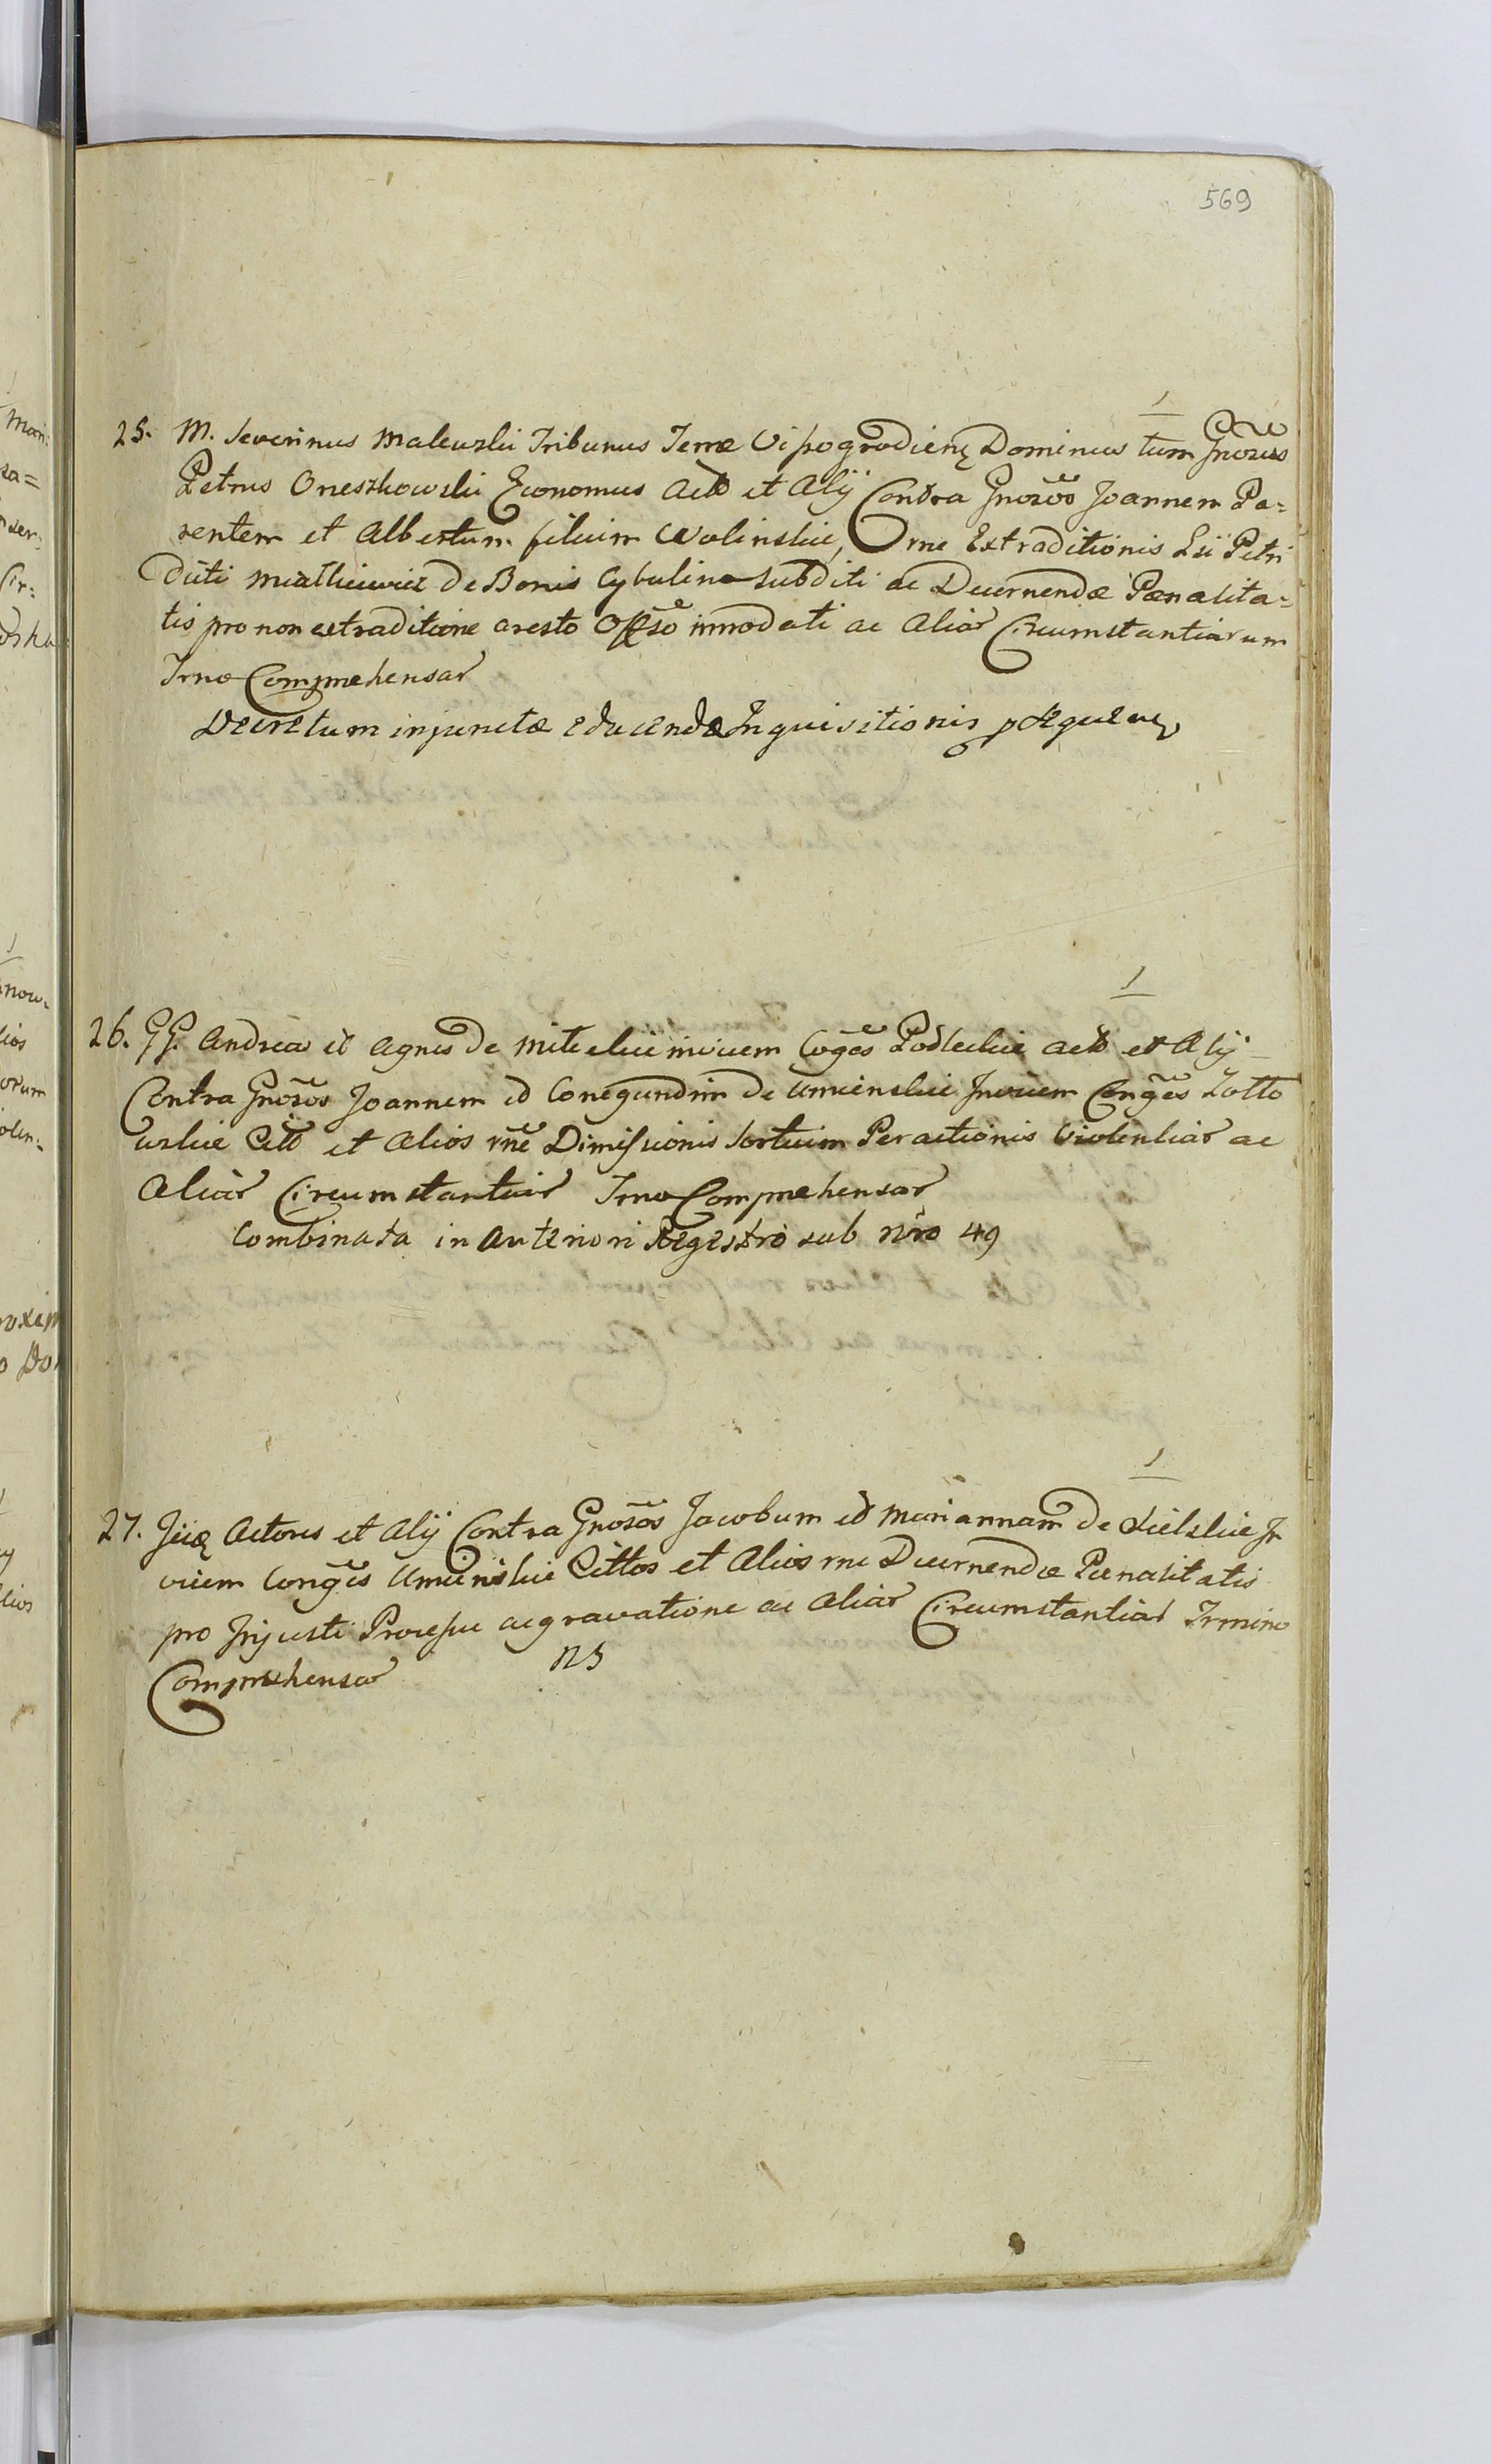 569
1
25. M. Severinus Malewski Tribunus Terræ Visogrodien Dominus tum Gnosus
Petrus Oneszkowski Economus Acto et Alij Contra Gnosõs Joannem Pa=
rentem et Albertum filium Wolinskie, Orne Extraditionis Lsi Petri
Duti Miałkiewicz De Bonis Cybulino Subditi ac Decernendæ Pœnalita=
tis pro non extraditione aresto Offso innodati ac Aliar Circumstantiarum
Trno Comprehensar
Decretum injunctæ educendæ Inquisitionis
1
26. GG. Andreas et Agnes De Miterskie invicem Cogẽs Podleckie Acto et Alij
Contra Gnosõs Joannem et Conegundim De Umienskie Invicem Congẽs Zotto
wskie Citt et Alios rne Dimissionis Sortium Peractionis Violentiar ac
Aliar Circumstantiar Trno Comprehensar
Combinata in Anteriori Regestro sub nro 49
1
27. Iiq Actores et Alij Contra Gnosõs Jacobum et Mariannam De Lielskie In
vicem Congẽs Umiński Cittos et Alios rne Decernendæ Pœnalitatis
pro Injusti Processu aggravatione ac Aliar Circumstantiar Trmino
Comprehensar ns